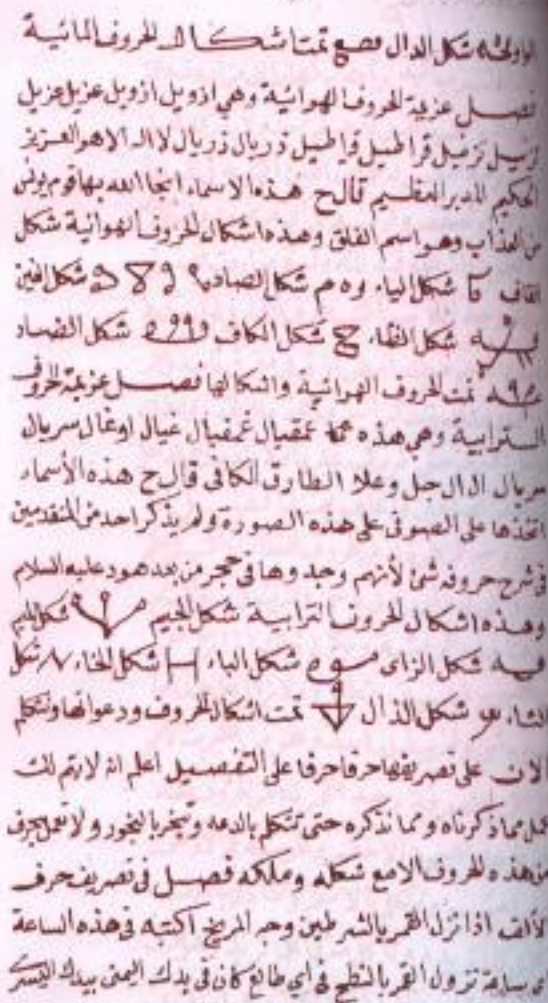 شكل الدال فصع تمت اشكال الحروف المائية
فصل عزيمة الحروف الهوائية وهي ازويل ازويل عزيل عزيل
تزئيل قراطيل قراطيل ذريال ذريال لا اله الا هو العزيز
الحكيم المدبر العظيم قال ح هذه الاسماء انجا الله بها قوم يونس
من العذاب وهو اسم الفلق وهذه اشكال الحروف الهوائية شكل
القاف شكل الياء وه م شكل الصاد شكل الغين
شكل الظاء شكل الكاف شكل الضاد
تمت الحروف الهوائية واشكالها فصل عزيمة الحروف
الترابية وهي هذه عمقيال غمفيال غيال اوغال سريال
سريال ال ال جل وعلا الطارق الكافى قال ح هذه الأسماء
اتخذها على الصوفى على هذه الصورة ولم يذكر احد من المتقدمين
فى شرح حروفه شئ لأنهم وجدوها فى حجر من بعد هود عليه السلام
وهذه اشكال الحروف الترابية شكل الجيم شكل الميم
شكل الزاى شكل الباء شكل الخاء شكل
الثاء شكل الذال تمت اشكال الحروف ودعواتها ونتكلم
الان على تصريفها حرفا حرفا على التفصيل اعلم انه لا يتم لك
عمل مما ذكرناه ومما نذكره حتى تتكلم بالدعه وتبخر بالبخور ولا تعمل بحرف
من هذه الحروف الا مع شكله وملكه فصل فى تصريف حرف
الألف اذا نزل القمر بالشرطين وجه المريخ اكتبه فى هذه الساعة
اى ساعة نزول القمر بالنطح فى اي طالع كان فى يدك اليمنى بيدك اليسر